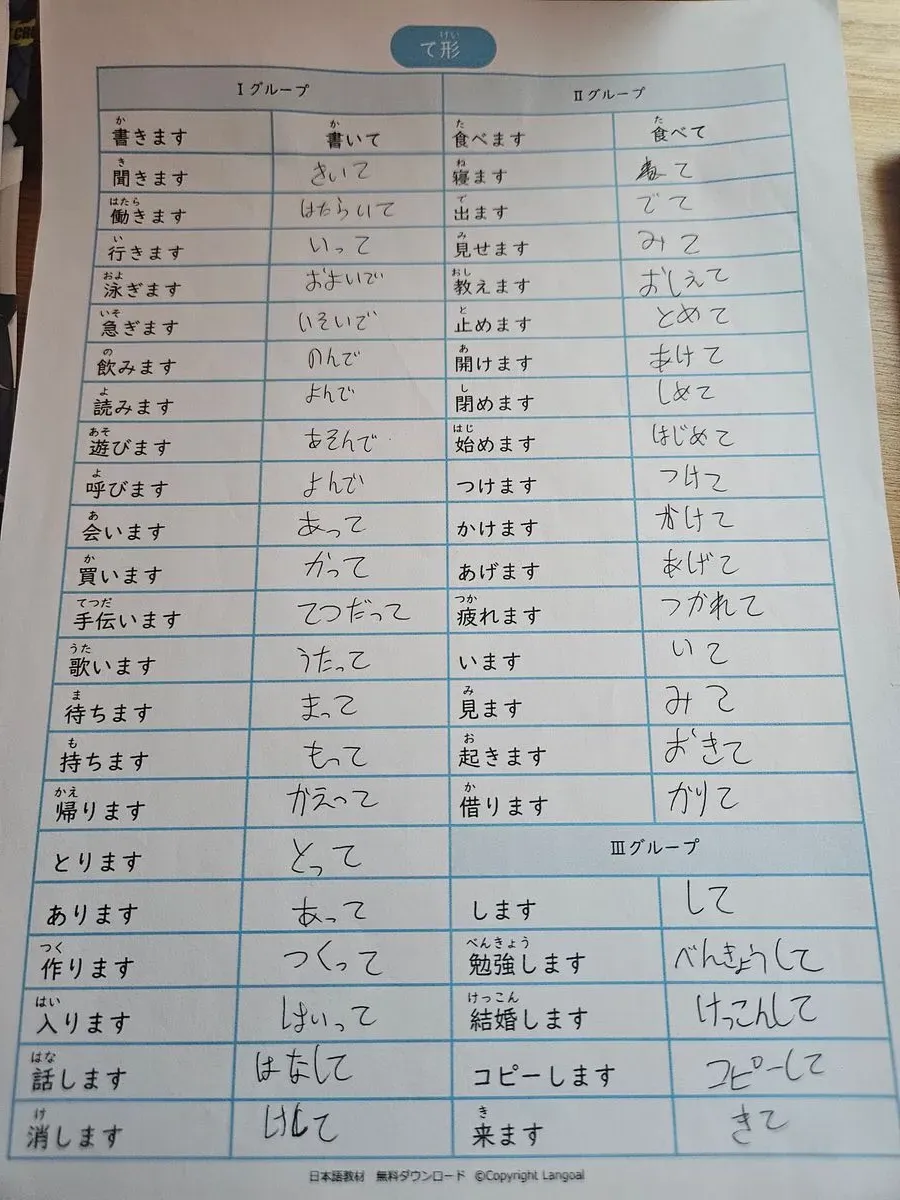 て形
けい
Ⅰグループ Ⅱグループ
か か た た
書きます 書いて 食べます 食べて
き ね
聞きます きいて 寝ます て
はたら で
働きます はたらいて 出ます でて
い み
行きます いって 見せます みて
およ おし
泳ぎます およいで 教えます おしえて
いそ と
急ぎます いそいで 止めます とめて
の あ
飲みます のんで 開けます あけて
よ し
読みます よんで 閉めます しめて
あそ はじ
遊びます あそんで 始めます はじめて
よ
呼びます よんで つけます つけて
あ
会います あって かけます かけて
か
買います かって あげます あげて
てつだ つか
手伝います てつだって 疲れます つかれて
うた
歌います うたって います いて
ま み
待ちます まって 見ます みて
も お
持ちます もって 起きます おきて
かえ か
帰ります かえって 借ります かりて
とります とって Ⅲグループ
あります あって します して
つく べんきょう
作ります つくって 勉強します べんきょうして
はい けっこん
入ります はいって 結婚します けっこんして
はな
話します はなして コピーします コピーして
け き
消します けして 来ます きて
日本語教材 無料ダウンロード ©Copyright Langoal